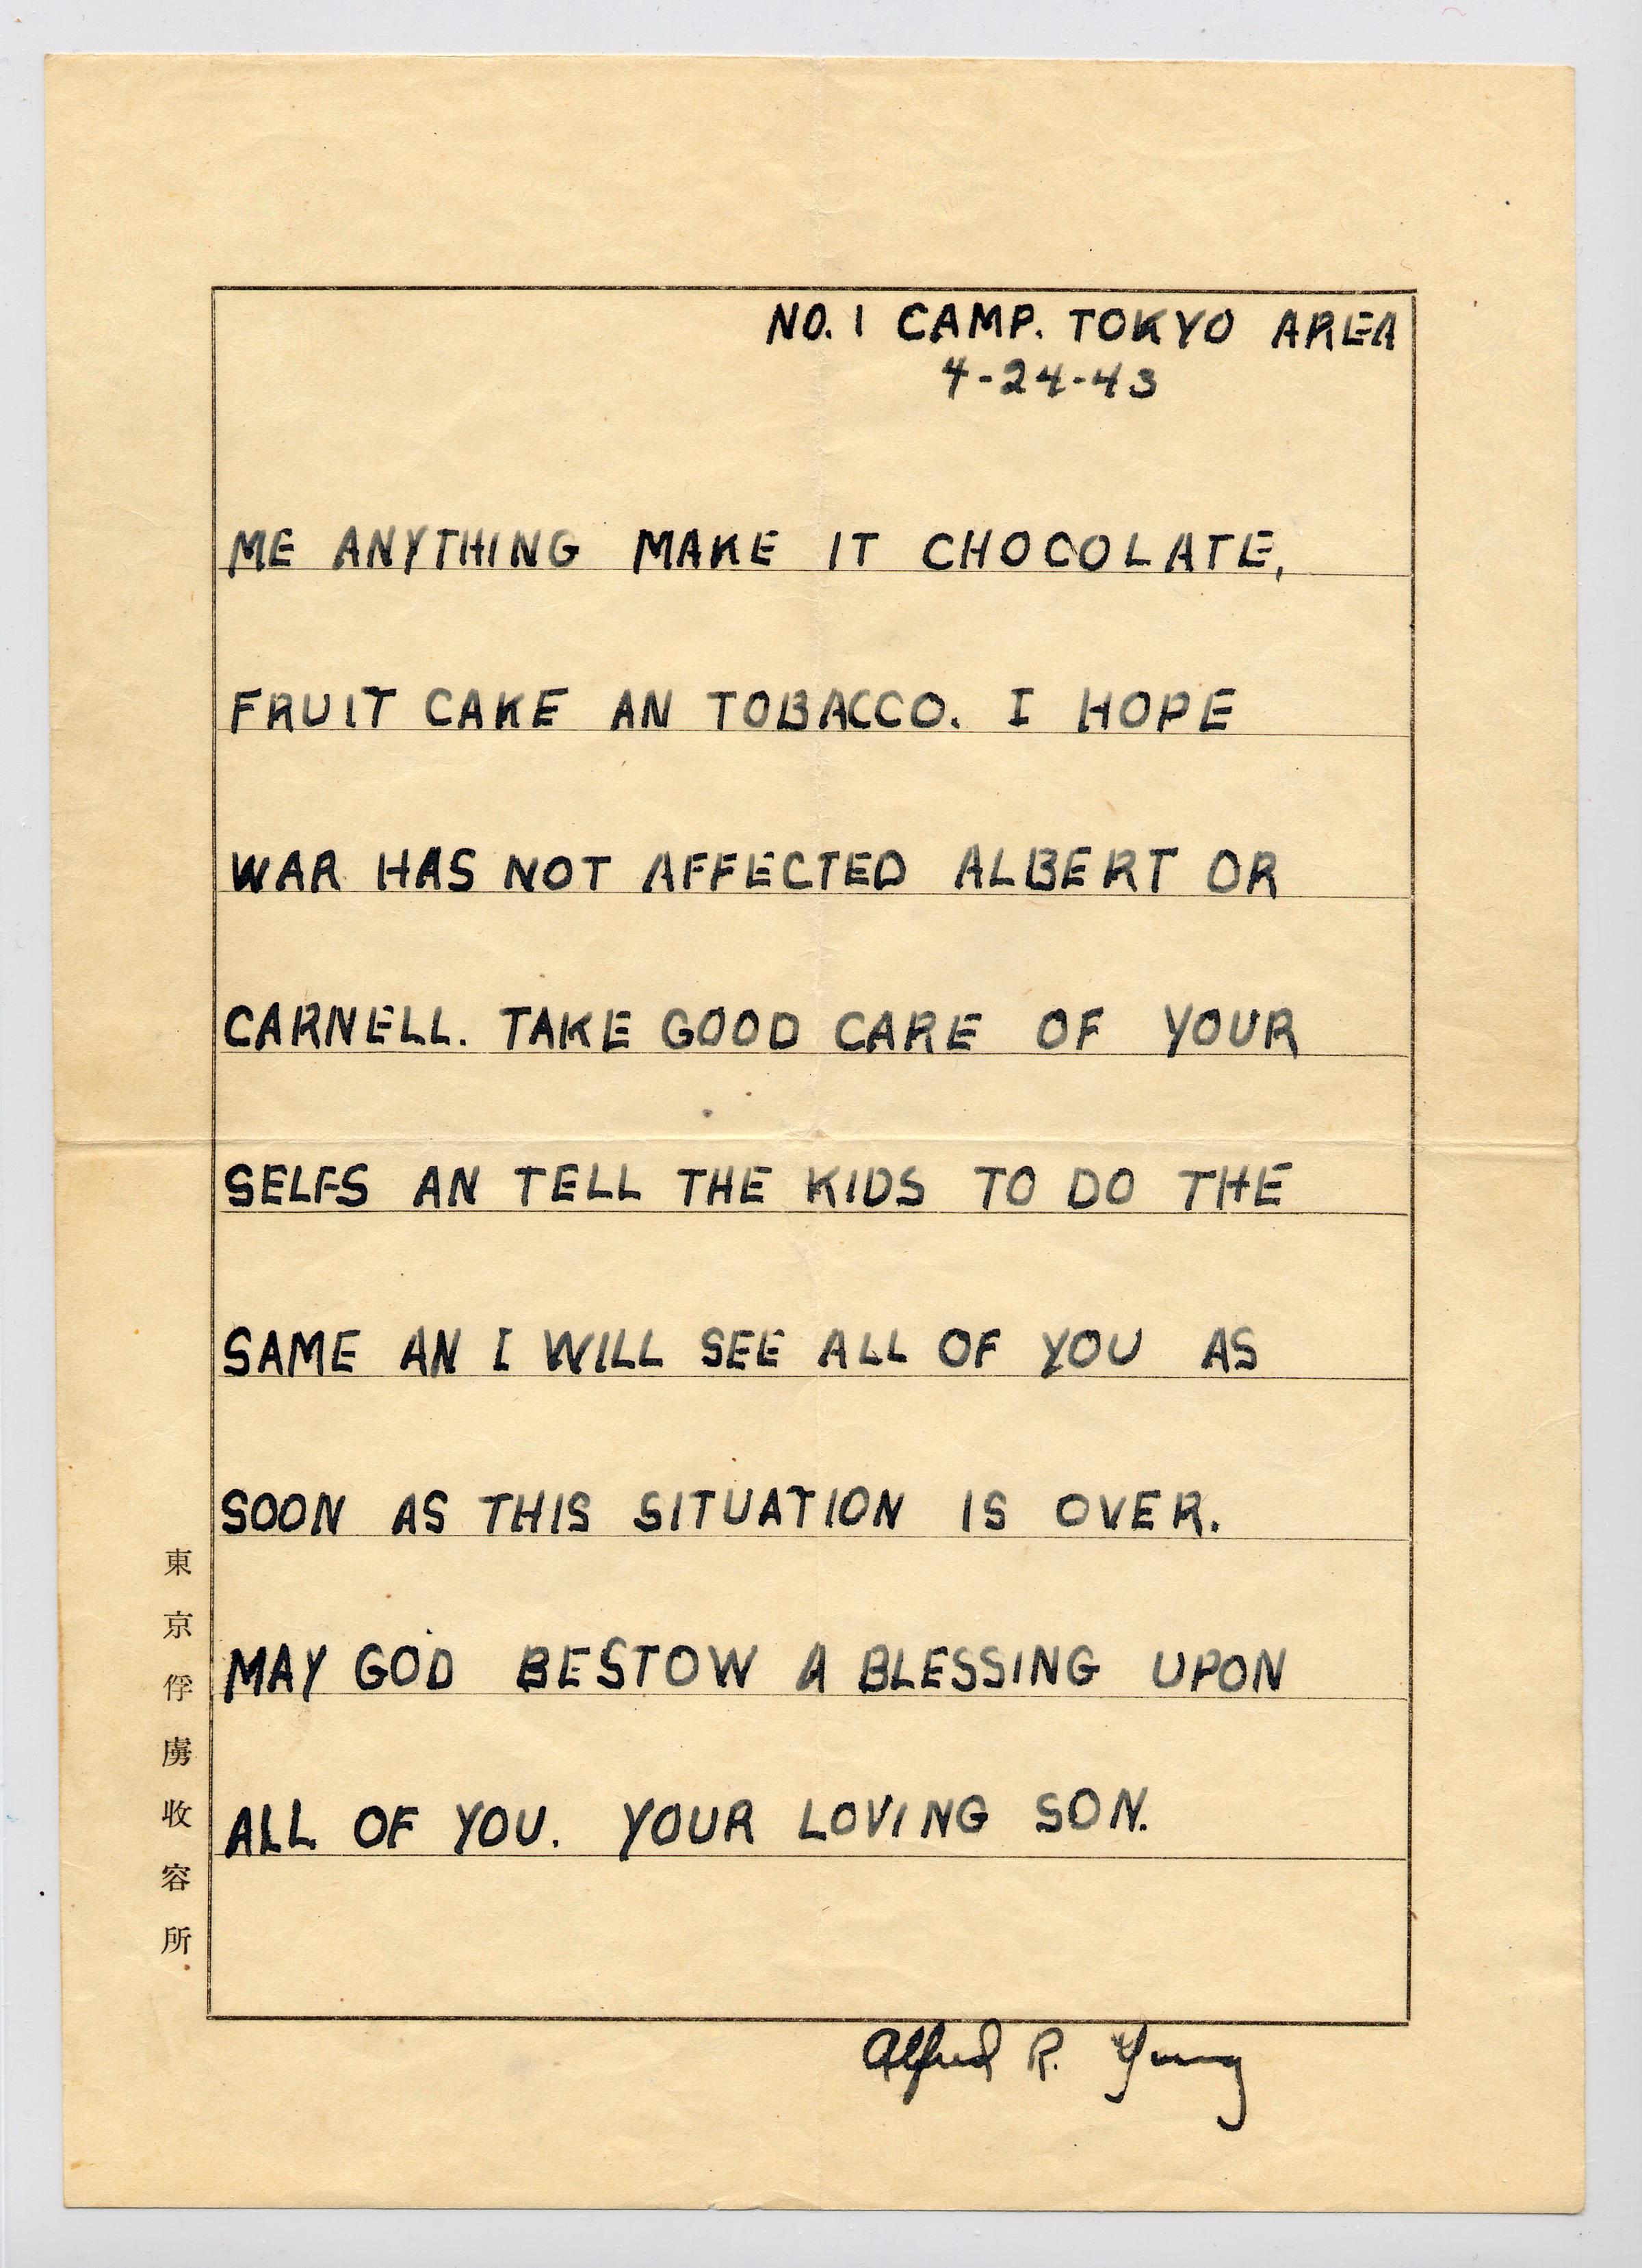 NO. 1 CAMP. TOKYO AREA
4-24-43
ME ANYTHING MAKE IT CHOCOLATE,
FRUIT CAKE AN TOBACCO. I HOPE
WAR HAS NOT AFFECTED ALBERT OR
CARNELL. TAKE GOOD CARE OF YOUR
SELFS AN TELL THE KIDS TO DO THE
SAME AN I WILL SEE ALL OF YOU AS
SOON AS THIS SITUATION IS OVER.
MAY GOD BESTOW A BLESSING UPON
ALL OF YOU. YOUR LOVING SON.
Alfred R. Young
東京俘虜収容所